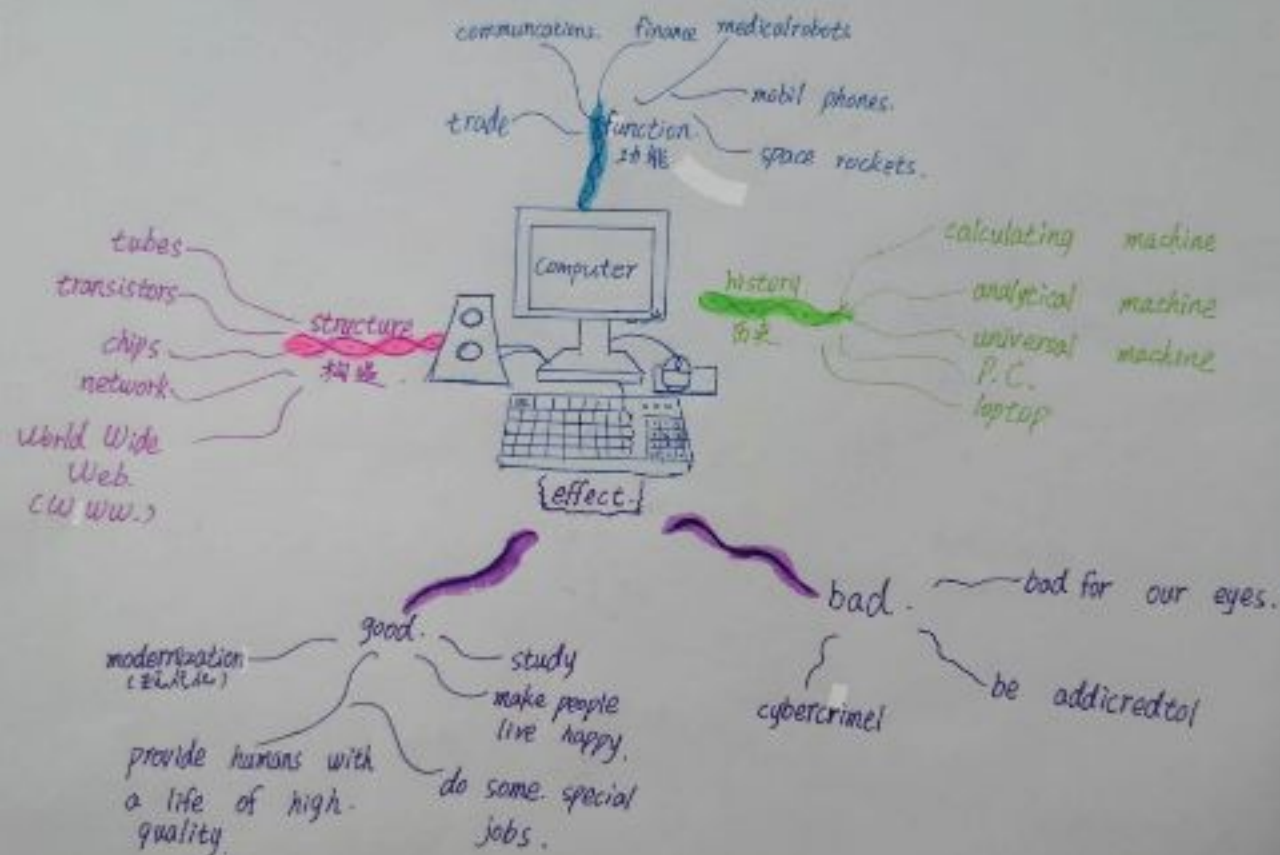 communcations. finance medicalrobots
mobil phones.
trade
function.
功能
space rockets.
computer
tubes
transistors
structure
构造
chips
network
World Wide
Web.
(W WW.)
history
历史
calculating machine
analytical machine
universal machine
P.C.
laptop
{effect.}
good.
modernization
(现代化)
study
make people
live happy.
provide humans with
a life of high.
quality.
do some. special
jobs.
bad.
bad for our eyes.
cybercrimel
be addicredtol